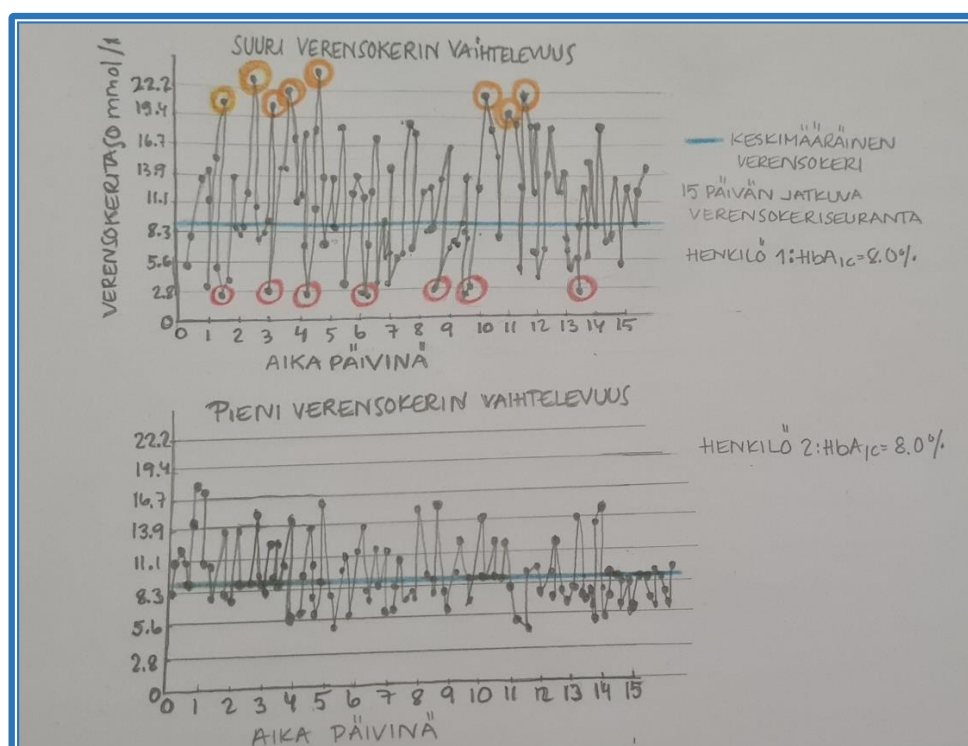 SUURI VERENSOKERIN VAIHTELEVUUS
VERENSOKERITASO mmol/l
22.2
19.4
16.7
13.9
11.1
8.3
5.6
2.8
0
0 1 2 3 4 5 6 7 8 9 10 11 12 13 14 15
AIKA PÄIVINÄ
KESKIMÄÄRÄINEN
VERENSOKERI
15 PÄIVÄN JATKUVA
VERENSOKERISEURANTA
HENKILÖ 1:HbA1c=8.0%
PIENI VERENSOKERIN VAIHTELEVUUS
22.2
19.4
16.7
13.9
11.1
8.3
5.6
2.8
0
0 1 2 3 4 5 6 7 8 9 10 11 12 13 14 15
AIKA PÄIVINÄ
HENKILÖ 2:HbA1c=8.0%